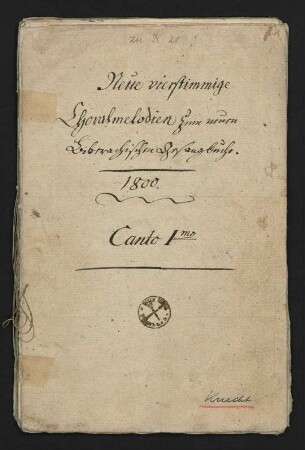 Neue vierstimmige
Choralmelodien zum neuen
Biberachischen Gesangbuche.
1800.
Canto 1mo
Knecht